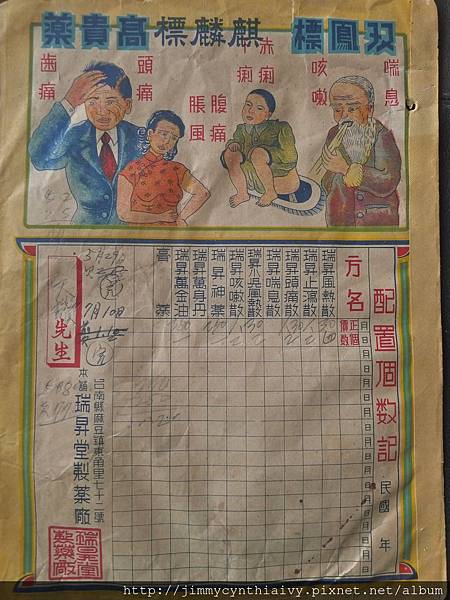 双鳳標 麒麟標 高貴薬
喘息
咳嗽
赤痢
腹痛
脹風
頭痛
歯痛
配置個数記
民國 年
方名
正價
個数
月日月日月日月日月日月日月日月日月日月日月日月日
瑞昇風熱散
瑞昇止瀉散
瑞昇喘息散
瑞昇頭痛散
瑞昇小児風熱散
瑞昇咳嗽散
瑞昇神薬
瑞昇萬身丹
瑞昇萬金油
膏薬
5月29日
7月10日
先生
台南縣麻豆鎮東角里七十二號
本舗 瑞昇堂製薬廠
瑞昇堂
製薬廠
http://jimmycynthiaivy.pixnet.net/album